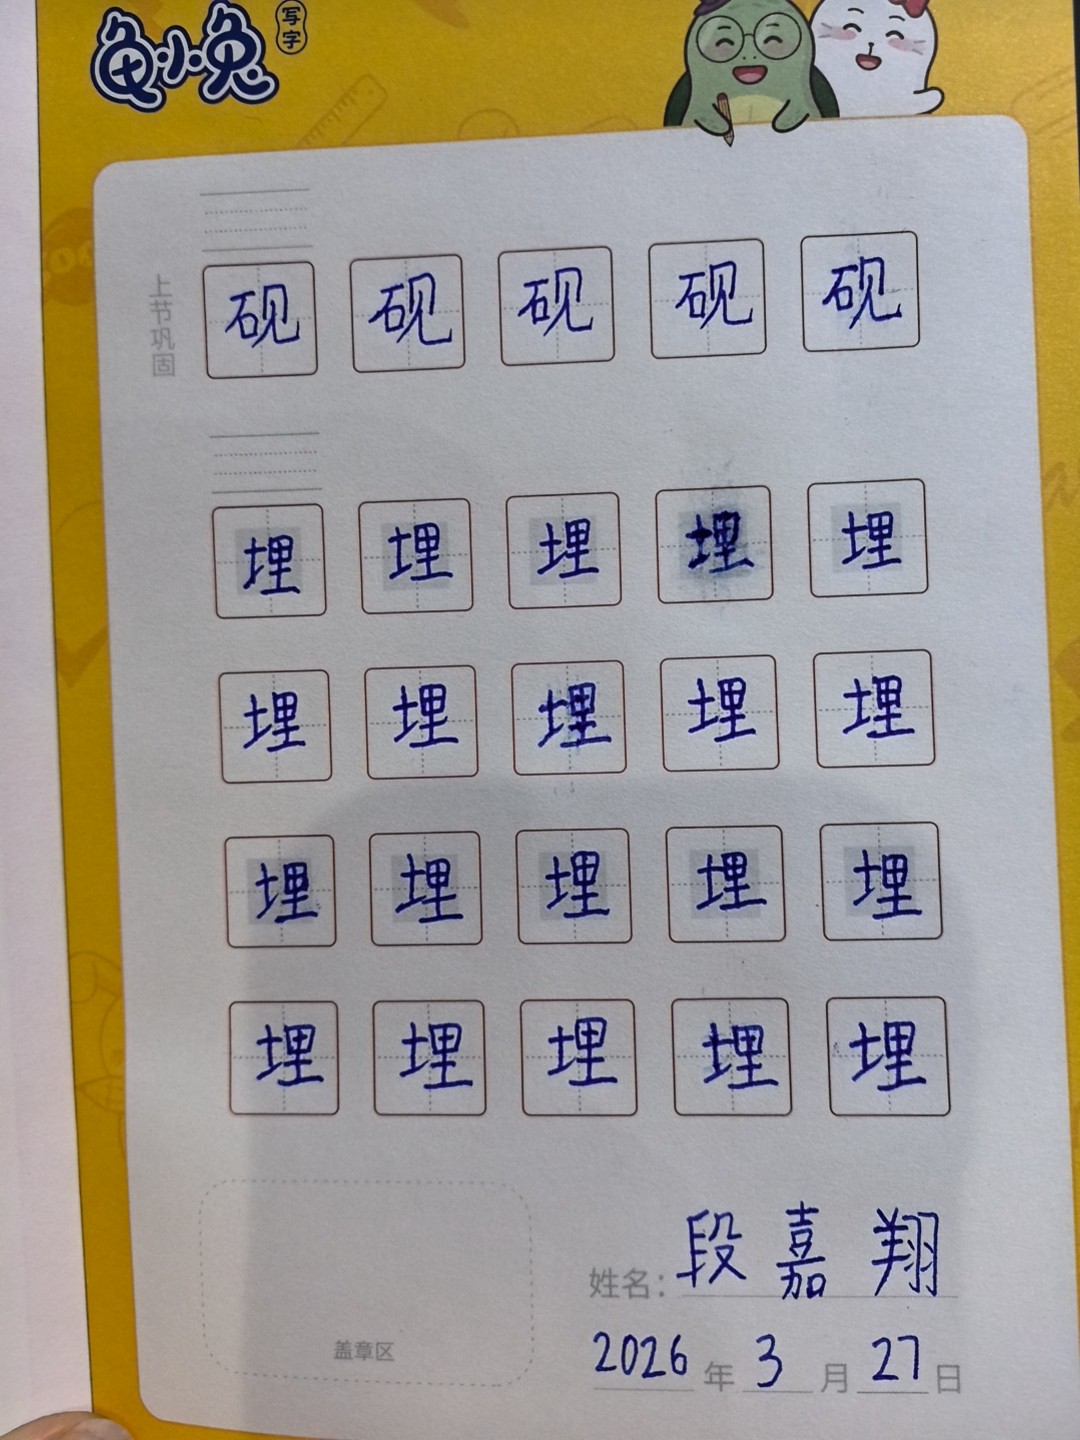 龟小兔
写字
上节巩固
砚 砚 砚 砚 砚
埋 埋 埋 埋 埋
埋 埋 埋 埋 埋
埋 埋 埋 埋 埋
埋 埋 埋 埋 埋
姓名：段嘉翔
2026年3月27日
盖章区